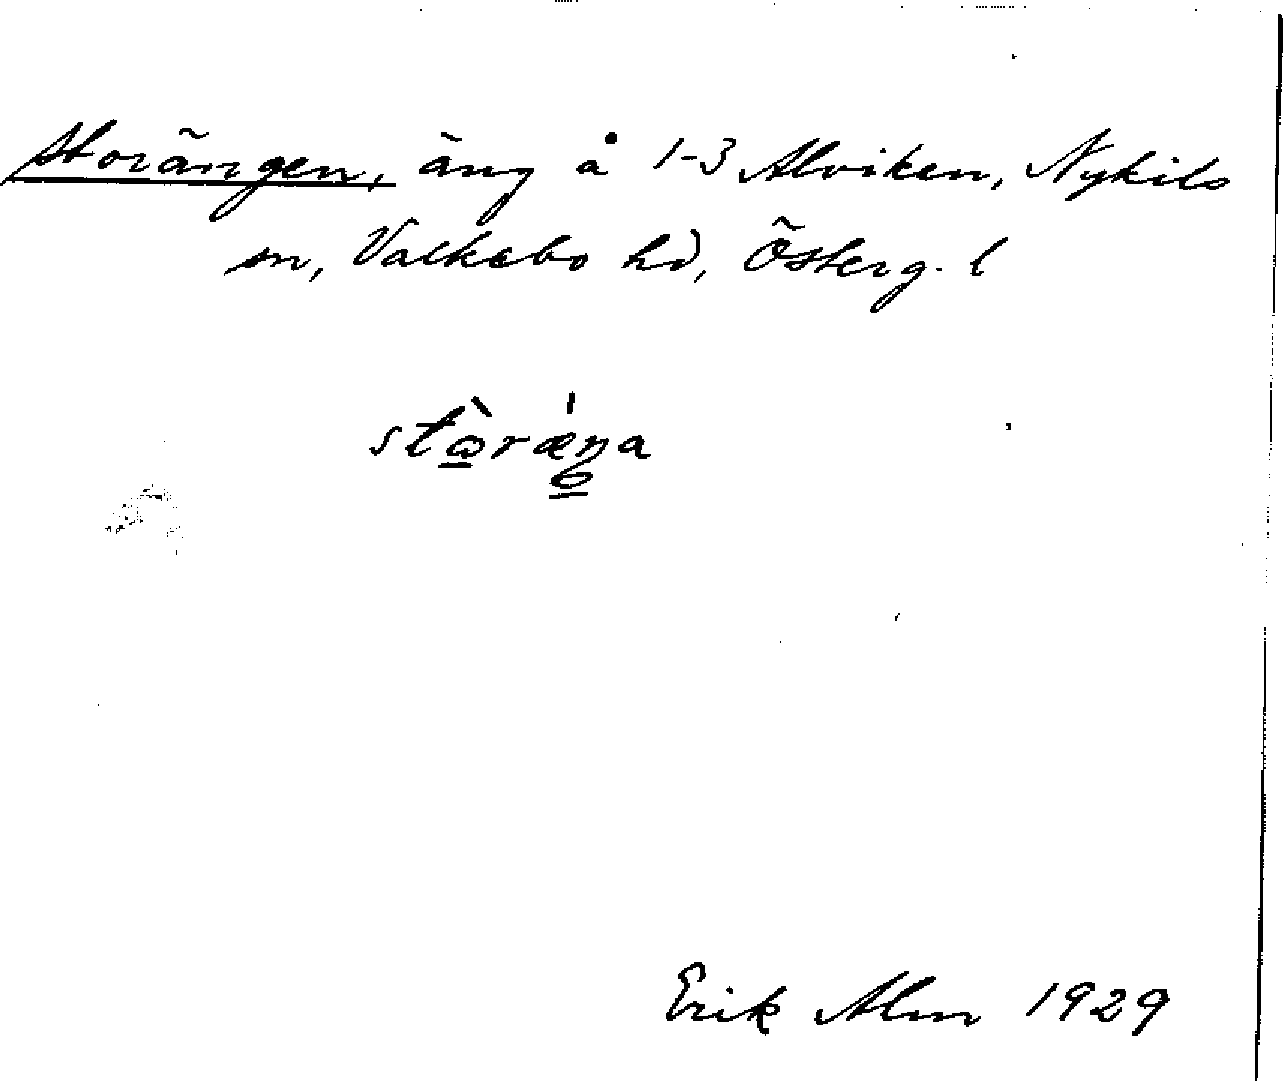 Storängen, äng å 1-3 Alviken, Nykils
sn, Valkebo hd, Österg. l
stò̲ræ̍ŋa
Erik Alm 1929